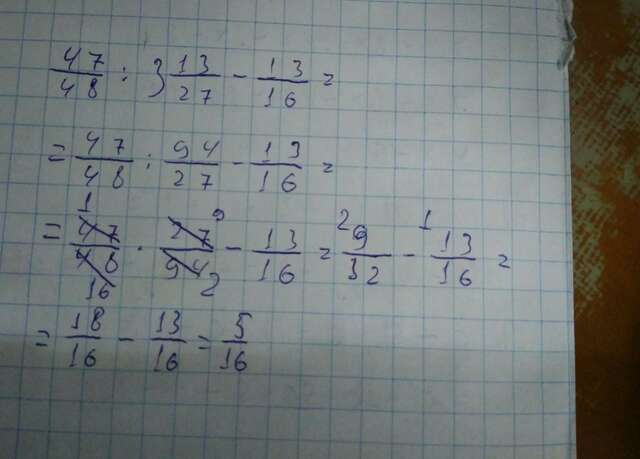 47/48 : 3 13/27 - 13/16 =
= 47/48 : 94/27 - 13/16 =
= 47/48 · 27/94 - 13/16 = 9/32 - 13/16 =
= 18/16 - 13/16 = 5/16